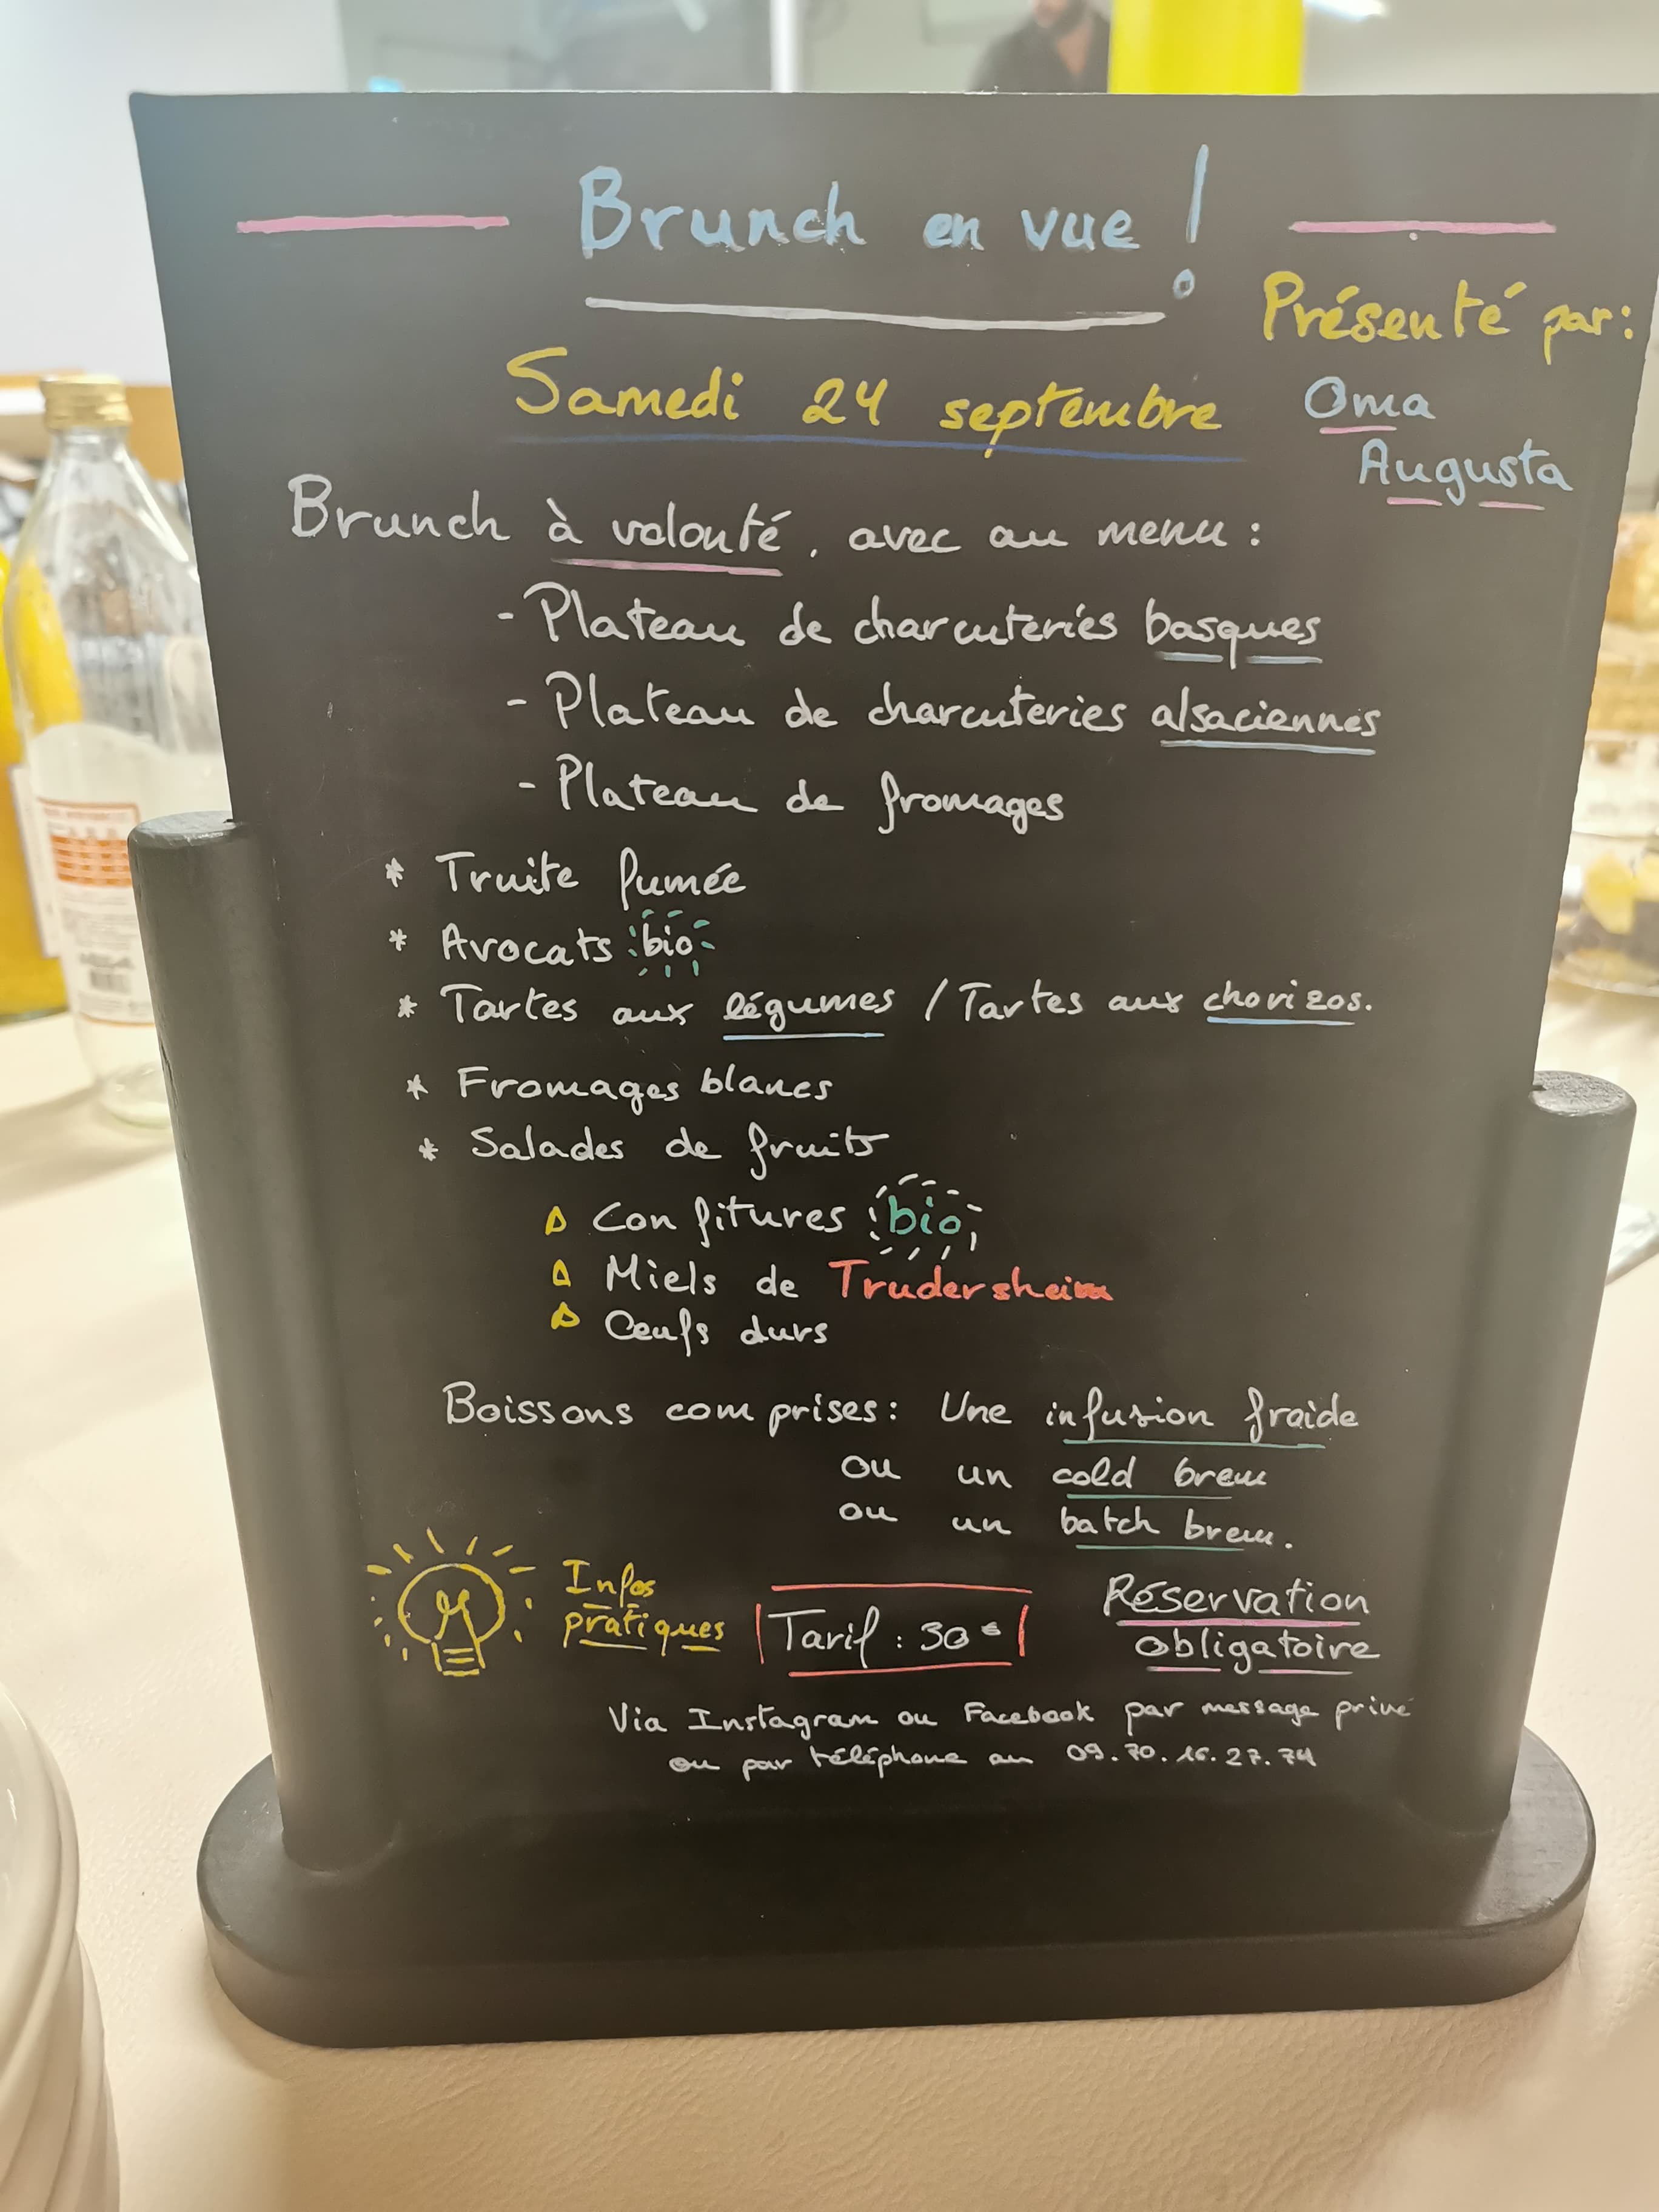 Brunch en vue !
Présenté par :
Samedi 24 septembre
Oma
Augusta
Brunch à volonté, avec au menu :
- Plateau de charcuteries basques
- Plateau de charcuteries alsaciennes
- Plateau de fromages
* Truite fumée
* Avocats bio
* Tartes aux légumes / Tartes aux chorizos.
* Fromages blancs
* Salades de fruits
Confitures bio
Miels de Trudersheim
Oeufs durs
Boissons comprises : Une infusion fraide
ou un cold brew
ou un batch brew.
Infos
pratiques
Tarif : 30€
Réservation
obligatoire
Via Instagram ou Facebook par message privé
ou par téléphone au 09.70.16.27.74